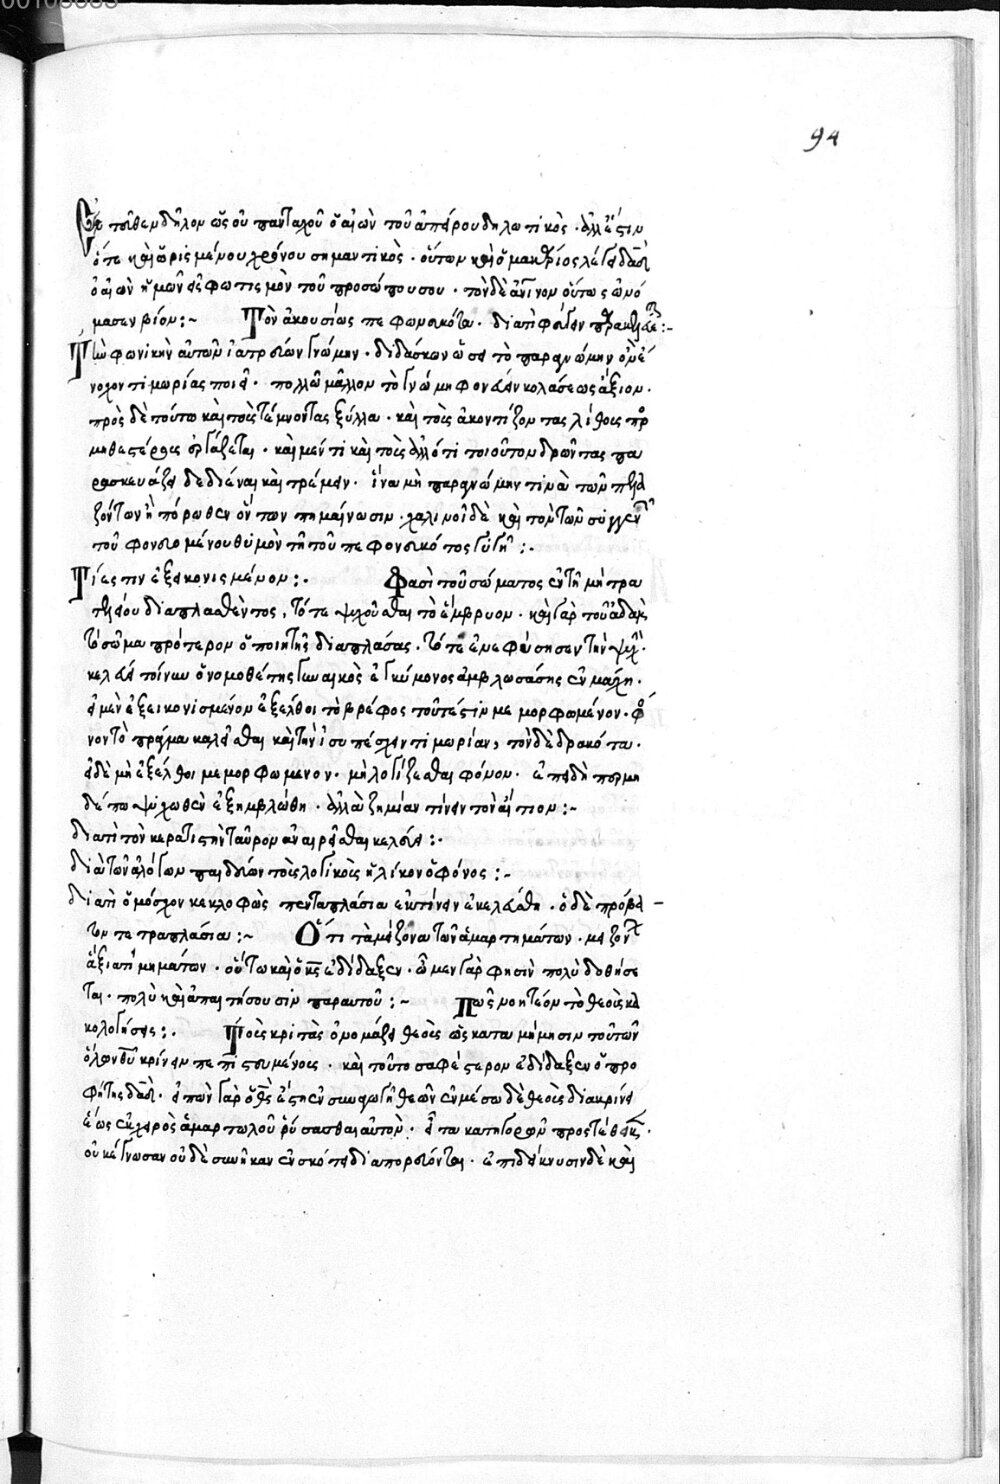 94
Ἐντεῦθεν δῆλον ὡς οὐ πανταχοῦ ὁ αἰὼν τοῦ ἀπείρου δηλωτικός · ἀλλ' ἔστιν
ὅτε καὶ ὡρισμένου χρόνου σημαντικός · οὕτω καὶ ὁ μακάριος λέγει δαδ
ὁ αἰὼν ἡμῶν εἰς φωτισμὸν τοῦ προσώπου σου · τὸν δὲ ἀνινον οὕτως ὠνό
μασεν βίον :~ Τὸν ἀκουσίως πεφονευκότα · διατί φεύγειν προσέταξε :~
Τὴν φονικὴν αὐτῶν ἰατρεύων γνώμην · διδάσκων ὡς εἰ τὸ παρὰ γνώμην ἔνο
νοχον τιμωρίας ποιεῖ · πολλῷ μᾶλλον τὸ γνώμῃ φονεύειν κολάσεως ἄξιον ·
πρὸς δὲ τούτω καὶ τοὺς τέμνοντας ξύλα · καὶ τοὺς ἀκοντίζοντας λίθοις προ
μηθεστέρους ἐργάζεται · καὶ μέντοι καὶ τοὺς ἄλλό τι τοιοῦτον δρῶντας πα
ρασκευάζει δεδιέναι καὶ τρέμειν · ἵνα μὴ παρὰ γνώμην τινὰ τῶν πελα
ζόντων ἢ πόρωθεν ὄντων πημαίνωσιν · χαλινοῖ δὲ καὶ τὸν τῶν συγγεν
τοῦ φονευομένου θυμὸν τῇ τοῦ πεφονευκότος φυγῇ :·
Τί ἐστιν ἐξεικονισμένον :· Φασὶ τοῦ σώματος ἐν τῇ μήτρα
τελείου διαπλασθέντος, τότε ψυχοῦσθαι τὸ ἔμβρυον · καὶ γὰρ τοῦ ἀδὰμ
τὸ σῶμα πρότερον ὁ ποιητὴς διαπλάσας · τότε ἐνεφύσησεν τὴν ψυχ ·
κελεύει τοίνυν ὁ νομοθέτης γυναικὸς ἐγκύμονος ἀμβλωσάσης ἐν μάχη ·
εἰ μὲν ἐξεικονισμένον ἐξέλθοι τὸ βρέφος τουτέστιν μεμορφωμένον · φό
νον τὸ πρᾶγμα καλεῖσθαι καὶ τὴν ἴσην πέσχειν τιμωρίαν, τὸν δεδρακότα ·
εἰ δὲ μὴ ἐξέλθοι μεμορφωμενον · μὴ λογίζεσθαι φόνον · ἐπειδὴ περ μη
δέπω ψυχωθὲν ἐξημβλώθη · ἀλλὰ ζημίαν τίνειν τὸν αἴτιον :~
διατί τὸν κερατιστὴν ταῦρον ἀναιρεῖσθαι κελεύει :·
διὰ τῶν ἀλόγων παιδεύων τοὺς λογικοὺς ἡλίκον ὁ φόνος :~
διατί ὁ μόσχον κεκλοφὼς πενταπλάσια ἐκτίνειν ἐκελεύσθη · ὁ δὲ πρόβα
τον τετραπλάσια :~ Ὅτι τὰ μείζονα τῶν ἁμαρτημάτων · μειζόν
ἄξια τιμημάτων · οὕτω καὶ ὁ κς ἐδίδαξεν · ᾧ μεν γὰρ φησὶν πολὺ δοθήσε
ται · πολὺ καὶ ἀπαιτήσουσιν παραυτοῦ :~ Πῶς νοητέον τὸ θεοὺς κα
κολογήσεις :· Τοὺς κριτὰς ὀνομάζει θεοὺς ὡς κατα μίμησιν τοῦ τῶν
ὅλων θυ κρίνειν πεπιστευμένους · καὶ τοῦτο σαφέστερον ἐδίδαξεν ὁ προ
φήτης δαδ · εἰπὼν γὰρ ὁ θς ἔστη ἐν συναγωγῇ θεῶν ἐν μέσω δὲ θεοὺς διακρινεῖ
ἕως ἐκ χειρὸς ἁμαρτωλοῦ ῥύσασθαι αὐτόν · εἶτα κατηγορῶν προστέθεικ ·
οὐκ ἔγνωσαν οὐδὲ συνῆκαν ἐν σκότει διαπορεύονται · ἐπιδείκνυσιν δὲ καὶ